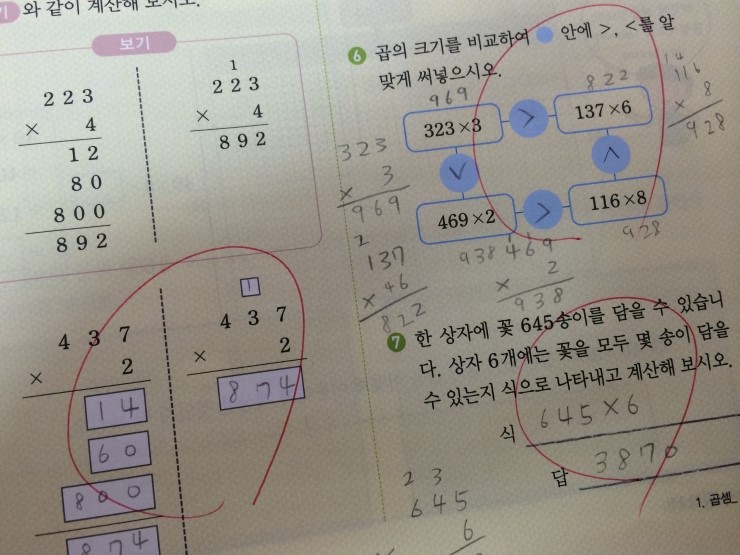 와 같이 계산해 보시오.
보기
2 2 3
× 4
1 2
8 0
8 0 0
8 9 2
1
2 2 3
× 4
8 9 2
4 3 7
× 2
1 4
6 0
8 0 0
8 7 4
1
4 3 7
× 2
8 7 4
6 곱의 크기를 비교하여 안에 >, <를 알
맞게 써넣으시오.
969
822
323×3 > 137×6
∨ ∧
469×2 > 116×8
938
928
323
× 3
969
2
137
× 6
822
14
116
× 8
928
1
469
× 2
938
7 한 상자에 꽃 645송이를 담을 수 있습니
다. 상자 6개에는 꽃을 모두 몇 송이 담을
수 있는지 식으로 나타내고 계산해 보시오.
식 645×6
답 3870
2 3
645
6
1. 곱셈_